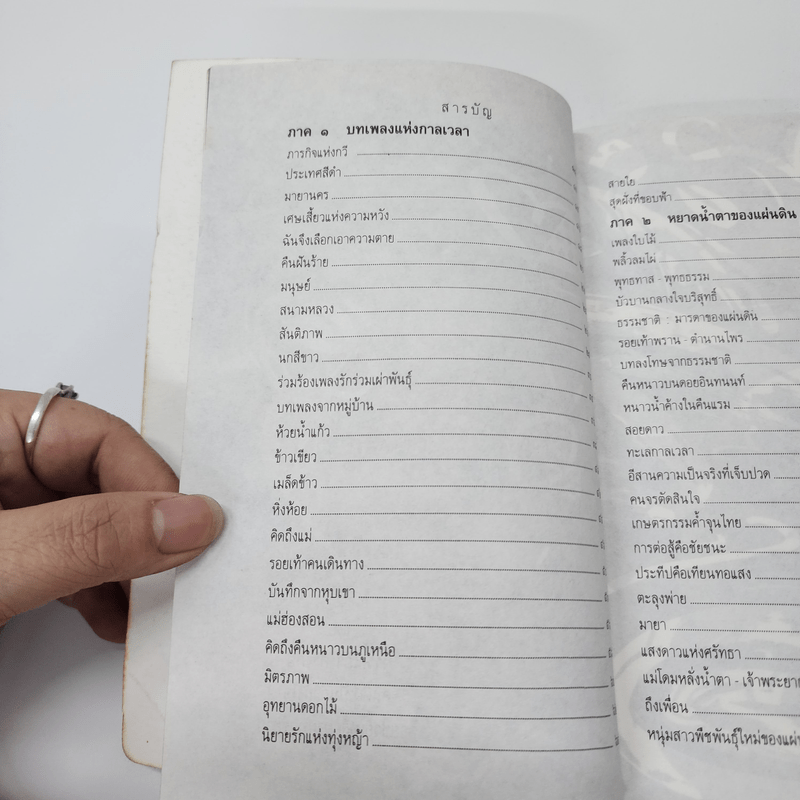 สารบัญ
ภาค ๑ บทเพลงแห่งกาลเวลา
ภารกิจแห่งกวี
ประเทศสีดำ
มายานคร
เศษเสี้ยวแห่งความหวัง
ฉันจึงเลือกเอาความตาย
คืนฝันร้าย
มนุษย์
สนามหลวง
สันติภาพ
นกสีขาว
ร่วมร้องเพลงรักร่วมเผ่าพันธุ์
บทเพลงจากหมู่บ้าน
ห้วยน้ำแก้ว
ข้าวเขียว
เมล็ดข้าว
หิ่งห้อย
คิดถึงแม่
รอยเท้าคนเดินทาง
บันทึกจากหุบเขา
แม่ฮ่องสอน
คิดถึงคืนหนาวบนภูเหนือ
มิตรภาพ
อุทยานดอกไม้
นิยายรักแห่งทุ่งหญ้า
สายใย
สุดฝั่งที่ขอบฟ้า
ภาค ๒ หยาดน้ำตาของแผ่นดิน
เพลงใบไม้
พลิ้วลมไผ่
พุทธทาส - พุทธธรรม
บัวบานกลางใจบริสุทธิ์
ธรรมชาติ : มารดาของแผ่นดิน
รอยเท้าพราน - ตำนานไพร
บทลงโทษจากธรรมชาติ
คืนหนาวบนดอยอินทนนท์
หนาวน้ำค้างในคืนแรม
สอยดาว
ทะเลกาลเวลา
อีสานความเป็นจริงที่เจ็บปวด
คนจรตัดสินใจ
เกษตรกรรมค้ำจุนไทย
การต่อสู้คือชัยชนะ
ประทีปคือเทียนทอแสง
ตะลุงพ่าย
มายา
แสงดาวแห่งศรัทธา
แม่โดมหลั่งน้ำตา - เจ้าพระยา
ถึงเพื่อน
หนุ่มสาวพืชพันธุ์ใหม่ของแผ่น